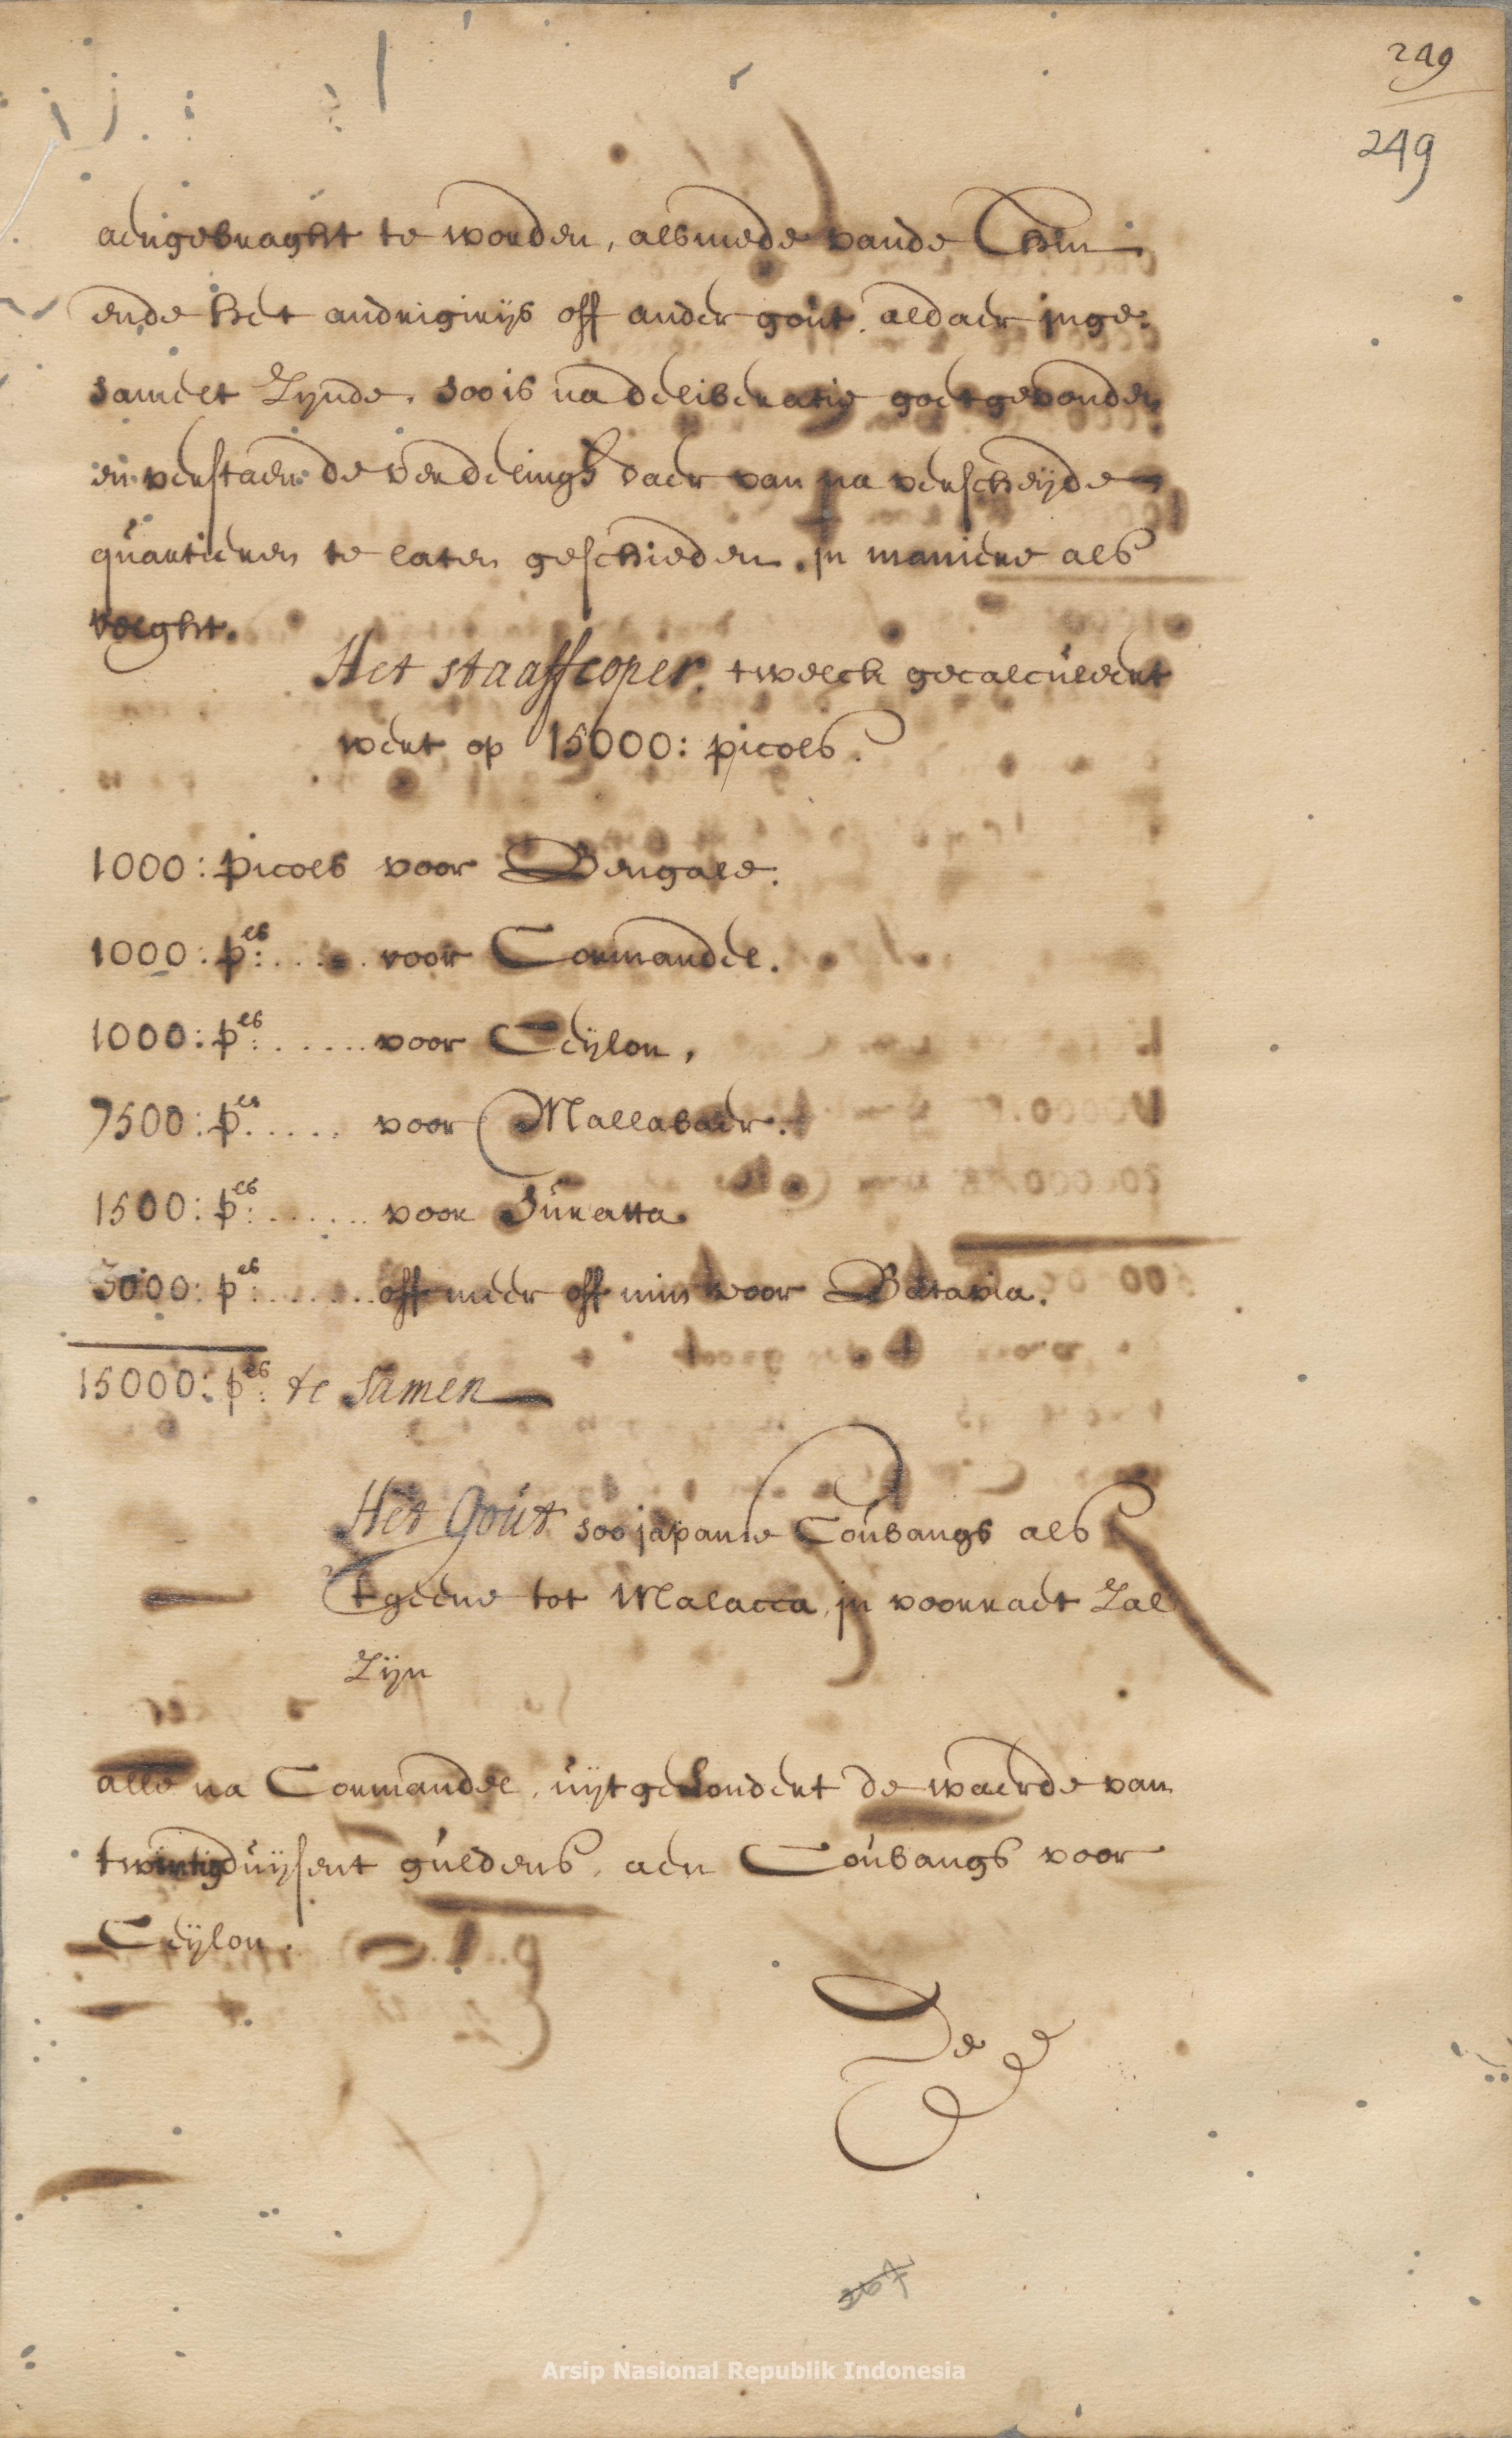 249
249
aengebraght te worden, alsmede vande Thin
ende het andrigirijs off ander gout, aldaer inge:
samelt zijnde, soo is na deliberatie goetgevonden
en verstaen de verdelingh daer van na verscheijde
quartieren te laten geschieden, in maniere als
volght.
Het staaffcoper, twelck gecalculeert
wert op 15000: picols.
1000: picols voor Bengale.
1000: p:es ...... voor Cormandel.
1000: p:es ...... voor Ceijlon,
7500: p:es ..... voor Mallabaer.
1500: p:es ...... voor Suratta
3000: p:es ....... off meer off min voor Batavia.
15000: p:es te samen
Het Gout soo japanse Coubangs als
tgeene tot Malacca, in voorraet zal
zijn
alle na Cormandel, uijtgesondert de waerde van
twintigduijsent guldens, aen Coubangs voor
Ceijlon.
De
Arsip Nasional Republik Indonesia